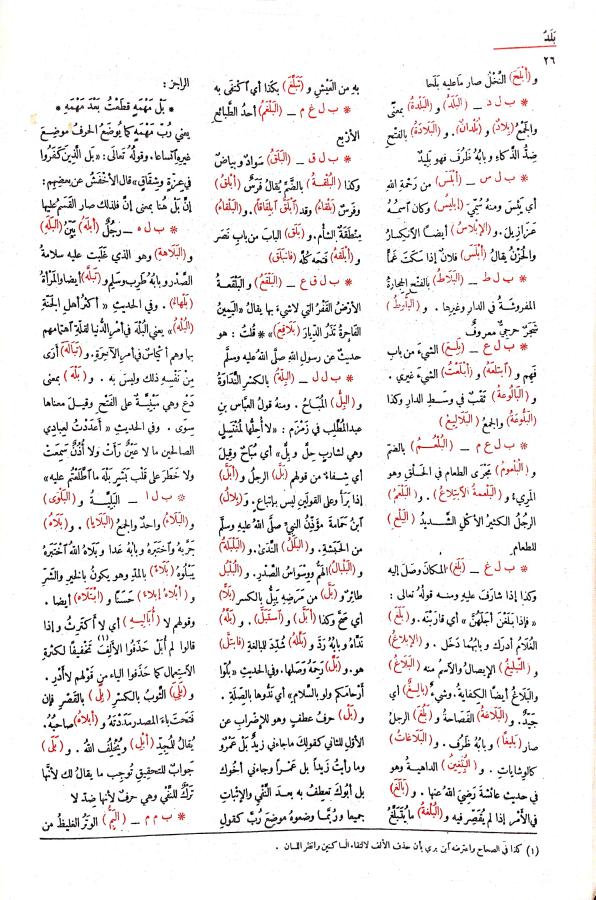 بَلَدٌ
٢٦
و (أَبْلَحَ) النَّخْلُ صار ما عليه بَلَحا
* ب ل د – (البَلَدُ) و (البَلْدَةُ) بمعنًى
والجَمْعُ (بِلَادٌ) و (بُلْدَانٌ). و (البَلَادَةُ) بالفتح
ضِدُّ الذَّكاء وبابُهُ ظَرُفَ فهو بَلِيدٌ
* ب ل س – (أَبْلَسَ) من رَحْمةِ اللهِ
أي يَئِسَ ومنه سُمِّيَ (إبليس) وكان اسمُهُ
عَزَازِيلَ. و (الإِبْلَاسُ) أيضًا الانْكِسارُ
والحُزْنُ يقالُ (أَبْلَسَ) فلانٌ إذا سَكَتَ غَمًّا
* ب ل ط – (البَلَاطُ) بالفتح الحجارةُ
المفروشةُ في الدار وغيرها. و (البَلُّوطُ)
شَجَرٌ حَرَجِيٌّ معروفٌ
* ب ل ع – (بَلِعَ) الشيءَ من باب
فَهِمَ و (ابْتَلَعَهُ) و (أَبْلَعْتُ) الشيءَ غيري.
و (البَالُوعَةُ) ثَقْبٌ في وَسَطِ الدار وكذا
(البَلُّوعَةُ) والجمعُ (البَلَالِيعُ)
* ب ل ع م – (البُلْعُمُ) بالضم
و (البُلْعُومُ) مَجْرَى الطعام في الحَلْقِ وهو
المريء. و (البَلْعَمَةُ الابْتِلاعُ). و (البَلْعَمُ)
الرجُلُ الكثيرُ الأكلِ الشَّديدُ (البَلْعِ)
للطعام
* ب ل غ – (بَلَغَ) المكانَ وصَلَ إليه
وكذا إذا شارَفَ عليه ومنه قولُهُ تعالى:
«فإذا بَلَغْنَ أَجَلَهُنَّ» أي قارَبْنَه. و (بَلَغَ)
الغُلامُ أدرك وبابُهُما دَخَلَ. و (الإبْلَاغُ)
و (التَّبْلِيغُ) الإيصالُ والاسمُ منه (البَلَاغُ)
و البَلاغُ أيضًا الكفاية. وشيءٌ (بالغٌ) أي
جَيِّدٌ. و (البَلَاغَةُ) الفَصاحةُ و (بَلُغَ) الرجلُ
صار (بليغًا) وبابُهُ ظَرُفَ. و (البَلَاغَاتُ)
كالوِشايات. و (البُلَغِينُ) الداهيةُ وهو
في حديث عائشةَ رَضِيَ اللهُ عنها. و (بَالَغَ)
في الأمر إذا لم يُقَصِّر فيه و (البُلْغَةُ) ما يُتَبَلَّغُ
بهِ من العَيْشِ و (تَبَلَّغَ) بكذا أي اكْتَفَى به
* ب ل غ م – (البَلْغَمُ) أحدُ الطبائعِ
الأربع
* ب ل ق – (البَلَقُ) سَوادٌ وبياضٌ
وكذا (البُلْقَةُ) بالضَّمِّ يُقالُ فَرَسٌ (أَبْلَقُ)
وفَرَسٌ (بَلْقاءُ) وقد (ابْلَقَّ ابْلِقَاقًا). و (البَلْقَاءُ)
مِنطَقَةٌ الشَّأْمِ. و (بَلَقَ) البابَ من باب نَصَرَ
و (أَبْلَقَهُ) فَتَحَهُ كُلَّه (فانْبَلَقَ)
* ب ل ق ع – (البَلْقَعُ) و (البَلْقَعَةُ)
الأرضُ القَفْرُ التي لا شيءَ بها يقالُ «اليَمِينُ
الفاجرةُ تَذَرُ الدِّيارَ (بَلَاقِعَ)» قُلْتُ: هو
حديثٌ عن رسولِ اللهِ صلَّى اللهُ عليه وسلَّم
* ب ل ل – (البِلَّةُ) بالكسر النَّدَاوَةُ
و (البِلُّ) المُبَاحُ. ومنه قولُ العبَّاسِ بنِ
عبدِ المُطَّلِبِ في زَمْزَمَ: «لا أُحِلُّها لِمُغْتَسِلٍ
وهي لشارِبٍ حِلٌّ وبِلٌّ» أي مُبَاحٌ وقيل
أي شِفاءٌ من قولهم (بَلَّ) الرجلُ و (أَبَلَّ)
إذا بَرَأَ وعلى القولينِ ليس بإتباعٍ. و (بِلالُ)
ابنُ حَمَامةَ مؤذِّنُ النبيِّ صلَّى اللهُ عليه وسلَّم
من الحَبَشةِ. و (البَلَلُ) النَّدَى. و (البَلْبَلَةُ)
و (البَلْبَالُ) الهمُّ ووَسواسُ الصدر. و (البُلْبُلُ)
طائرٌ و (بَلَّ) من مَرَضِهِ يَبِلُّ بالكسر (بَلًّا)
أي صَحَّ وكذا (أَبَلَّ) و (اسْتَبَلَّ). و (بَلَّهُ)
نَدَّاهُ وبابُهُ رَدَّ و (بَلَّلَهُ) شُدِّدَ للمبالغةِ (فابْتَلَّ)
هو. و (بَلَّ) رَحِمَهُ وَصَلَها. وفي الحديث «بُلُّوا
أرحامَكُم ولو بالسَّلام» أي نَدُّوها بالصِّلة.
و (بَلْ) حرفُ عطفٍ وهو للإضرابِ عن
الأوَّلِ للثاني كقولك ما جاءني زيدٌ بل عَمْرٌو
وما رأيتُ زَيْدًا بل عَمْرًا وجاءني أخوك
بل أبوكَ تَعْطِفُ به بعدَ النَّفْي والإثبات
جميعا ورُبَّما وضعوهُ موضعَ رُبَّ كقولِ
الراجز:
* بَلْ مَهْمَهٍ قَطَعْتُ بَعْدَ مَهْمَهِ *
يعني رُبَّ مَهْمَهٍ كما يُوضَعُ الحرفُ موضعَ
غيره اتِّساعا. وقولُهُ تعالى: «بَلِ الَّذِينَ كَفَرُوا
في عِزَّةٍ وشِقَاقٍ» قال الأخفشُ عن بعضِهِم:
إنَّ بل هنا بمعنى إنَّ فلذلك صار القَسَمُ عليها
* ب ل ه – رجُلٌ (أَبْلَهُ) بَيِّنُ (البَلَهِ)
و (البَلَاهَةِ) وهو الذي غَلَبت عليه سلامةُ
الصَّدر وبابُهُ طَرِبَ وسَلِمَ و (تَبَلَّهَ) أيضا والمرأةُ
(بَلْهاءُ). وفي الحديث «أكثرُ أهلِ الجنَّةِ
(البُلْهُ)» يعني البُلْهَ في أمرِ الدُّنيا لقلَّةِ اهتمامِهم
بها وهم أكياسٌ في أمرِ الآخرة. و (تَبَالَهَ) أرَى
مِن نفسِهِ ذلك وليسَ به. و (بَلْهَ) بمعنى
دَعْ وهي مَبْنِيَّةٌ على الفَتْحِ وقيل معناها
سِوَى. وفي الحديثِ «أعْدَدْتُ لِعبادي
الصالحين ما لا عَيْنٌ رَأَتْ ولا أُذُنٌ سَمِعَتْ
ولا خَطَرَ على قلبِ بَشَرٍ بَلْهَ ما اطْلَعْتُم عليه»
* ب ل ا – (البَلِيَّةُ) و (البَلْوَى)
و (البَلَاءُ) واحدٌ والجمعُ (البَلَايا). و (بَلَاهُ)
جَرَّبَهُ واخْتَبَرَهُ وبابُهُ عَدَا وبَلَاهُ اللهُ اخْتَبَرَهُ
يَبْلُوهُ (بَلَاءً) بالمد وهو يكونُ بالخيرِ والشَّرِّ
و (أبْلاهُ إبْلَاءً) حَسَنًا و (ابْتَلَاهُ) أيضا.
وقولهم لا (أُبَالِيهِ) أي لا أَكْتَرِثُ وإذا
قالوا لم أُبَلْ حَذَفُوا الألفَ(١) تَخْفِيفًا لكَثْرَةِ
الاستِعمال كما حَذَفُوا الياءَ من قَوْلِهم لا أَدْرِ.
و (بَلِيَ) الثوبُ بالكسرِ (بِلًى) بالقَصْرِ فإن
فَتَحْتَ باءَ المصدرِ مَدَدْتَهُ و (أَبْلَاهُ) صاحبُهُ.
يُقالُ للمُجِدِّ (أَبْلِ) ويُخْلِفُ اللهُ. و (بَلَى)
جوابٌ للتحقيقِ تُوجِبُ ما يقالُ لك لأنها
تَرْكٌ للنَّفْي وهي حرفٌ لأنها ضِدُّ لا
* ب م م – (البَمُّ) الوَتَرُ الغليظُ من
(١) كذا في الصحاح واعترضه ابن بري بأن حذف الألف لالتقاء الساكنين وانظر اللسان.